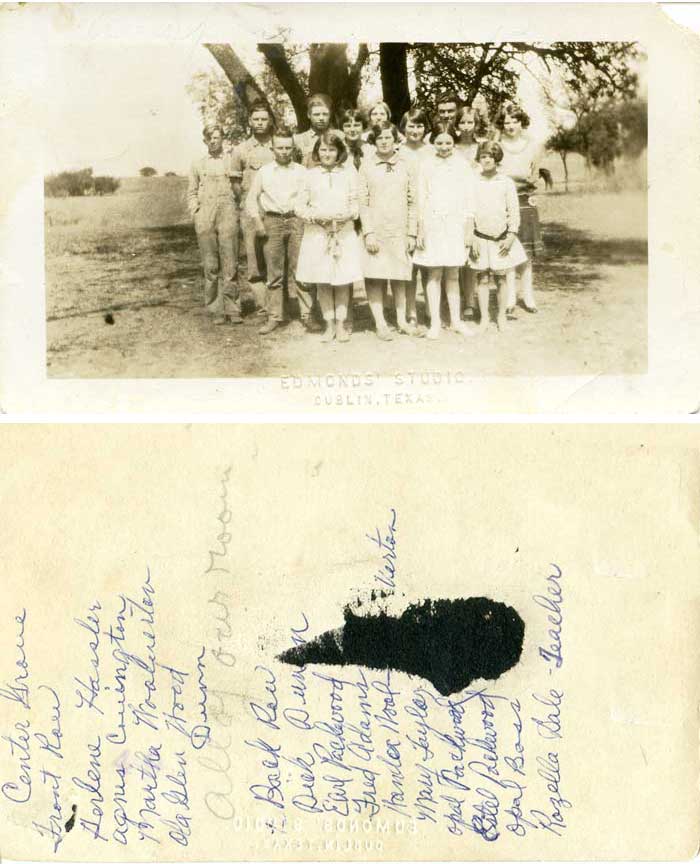 EDMONDS' STUDIO.
DUBLIN, TEXAS.
Center Grove
Front Row
Herlene Hassler
Agnes Livington
Martha Woolverton
Ola Glen Wood
Dunn
All of our room
Back Row
Dick Dunn
Earl Packwood
Fred Adams
Vanlea Wool-verton
Mary Taylor
Opel Packwood
Estel Packwood
Opal Bass
Rozella Sale - Teacher
EDMONDS' STUDIO.
DUBLIN, TEXAS.